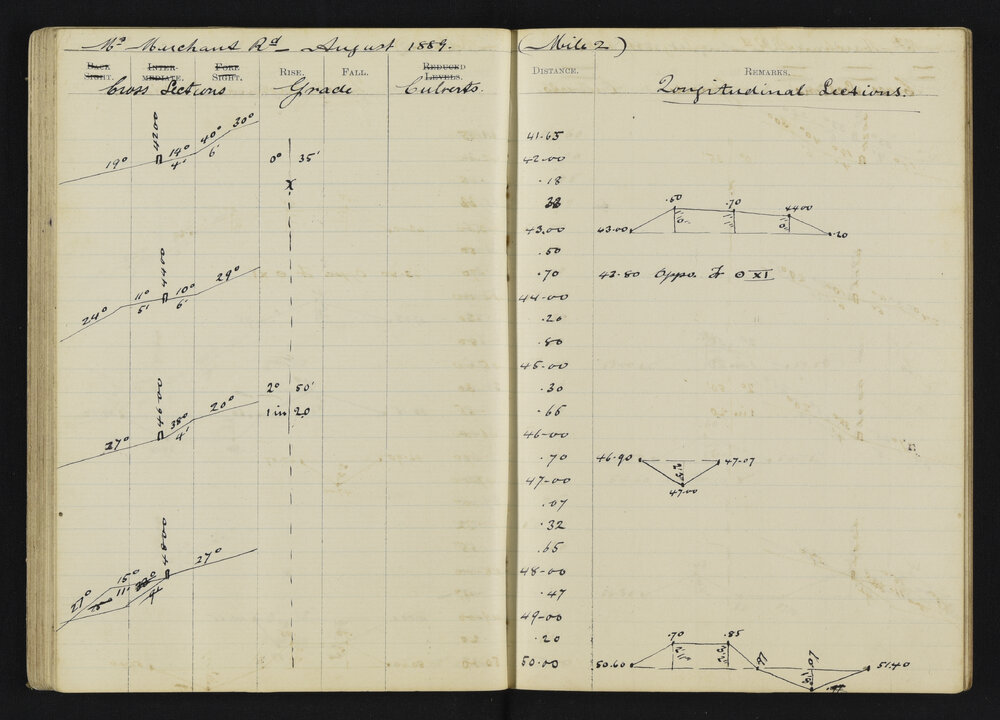 Mr Merchant Rd August 1889.
BACK SIGHT. INTER-MEDIATE. FORE SIGHT. RISE. FALL. REDUCED LEVELS.
Cross Sections Grade Culverts.
4200
19° 14° 40° 30°
4' 6'
0° 35'
X
4400
24° 11° 10° 29°
5' 6'
2° 50'
1 in 20
27° 38° 20°
4'
4800
27° 15° 27°
11'
(Mile 2)
DISTANCE. REMARKS.
Longitudinal Sections.
41.65
42.00
.18
38
43.00 43.00 .50 .70 44.00 .20
.50
.70 43.80 Oppo. ⊙ XI
44.00
.20
.80
45.00
.30
.65
46.00
.70 46.90 47.07
47.00 47.00
.07
.32
.65
48.00
.47
49.00
.20 .70 .85
50.00 50.60 51.40